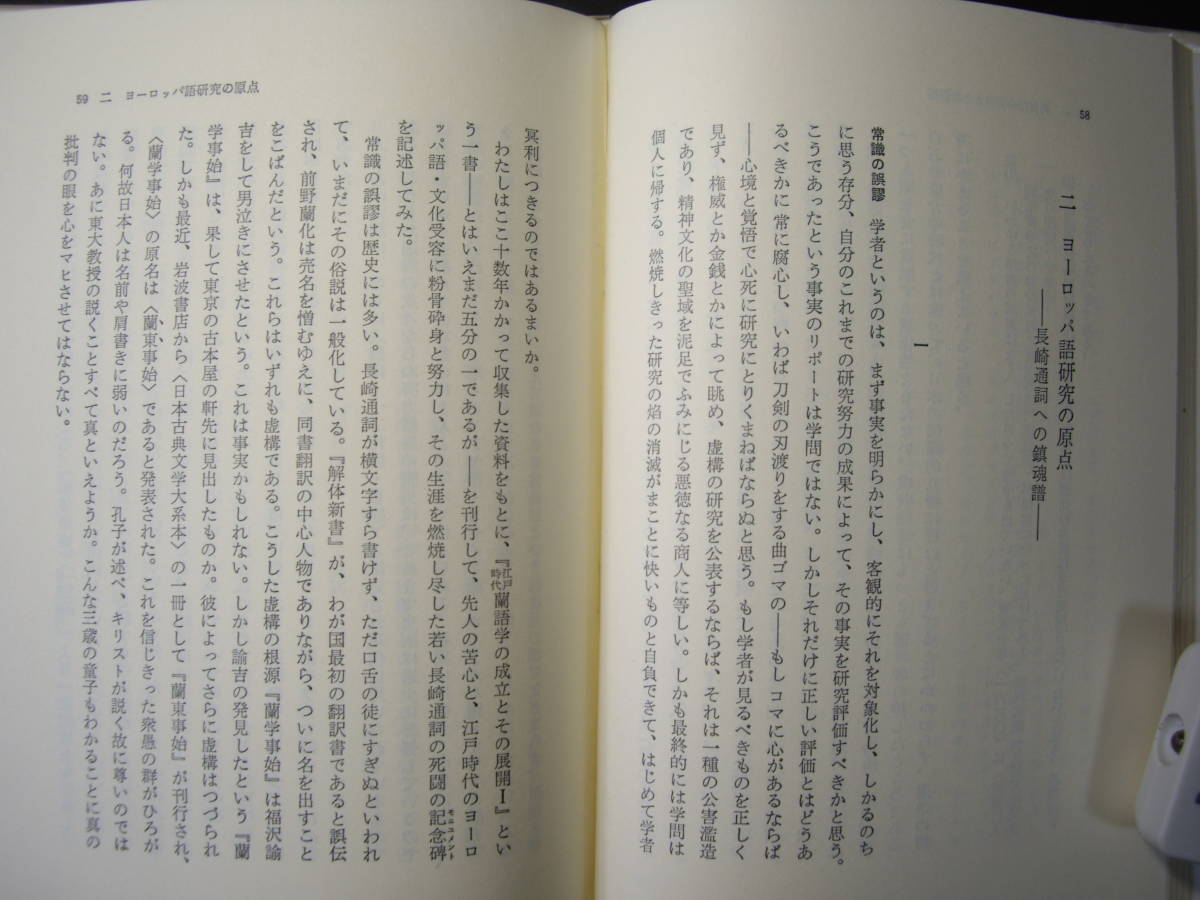 58
二　ヨーロッパ語研究の原点
――長崎通詞への鎮魂譜――
一
常識の誤謬　学者というのは、まず事実を明らかにし、客観的にそれを対象化し、しかるのち
に思う存分、自分のこれまでの研究努力の成果によって、その事実を研究評価すべきかと思う。
こうであったという事実のリポートは学問ではない。しかしそれだけに正しい評価とはどうあ
るべきかに常に腐心し、いわば刀剣の刃渡りをする曲ゴマの――もしコマに心があるならば
――心境と覚悟で心死に研究にとりくまねばならぬと思う。もし学者が見るべきものを正しく
見ず、権威とか金銭とかによって眺め、虚構の研究を公表するならば、それは一種の公害濫造
であり、精神文化の聖域を泥足でふみにじる悪徳なる商人に等しい。しかも最終的には学問は
個人に帰する。燃焼しきった研究の焔の消滅がまことに快いものと自負できて、はじめて学者
59　二　ヨーロッパ語研究の原点
冥利につきるのではあるまいか。
わたしはここ十数年かかって収集した資料をもとに、『江戸時代蘭語学の成立とその展開Ⅰ』とい
う一書――とはいえまだ五分の一であるが――を刊行して、先人の苦心と、江戸時代のヨーロ
ッパ語・文化受容に粉骨砕身と努力し、その生涯を燃焼し尽した若い長崎通詞の死闘の記念碑モニュメント
を記述してみた。
常識の誤謬は歴史には多い。長崎通詞が横文字すら書けず、ただ口舌の徒にすぎぬといわれ
て、いまだにその俗説は一般化している。『解体新書』が、わが国最初の翻訳書であると誤伝
され、前野蘭化は売名を憎むゆえに、同書翻訳の中心人物でありながら、ついに名を出すこと
をこばんだという。これらはいずれも虚構である。こうした虚構の根源『蘭学事始』は福沢諭
吉をして男泣きにさせたという。これは事実かもしれない。しかし諭吉の発見したという『蘭
学事始』は、果して東京の古本屋の軒先に見出したものか。彼によってさらに虚構はつづられ
た。しかも最近、岩波書店から〈日本古典文学大系本〉の一冊として『蘭東事始』が刊行され、
〈蘭学事始〉の原名は〈蘭東事始〉であると発表された。これを信じきった衆愚の群がひろが
る。何故日本人は名前や肩書きに弱いのだろう。孔子が述べ、キリストが説く故に尊いのでは
ない。あに東大教授の説くことすべて真といえようか。こんな三歳の童子もわかることに真の
批判の眼を心をマヒさせてはならない。